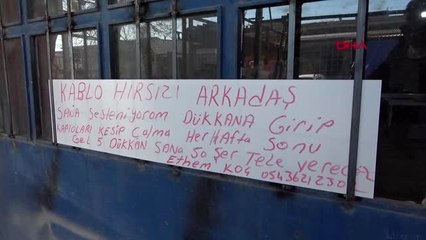 DHA
KABLO HIRSIZI ARKADAŞ
SANA SesLeNiyorom DÜKKANA Girip
KABLOLARI KESİP ÇaLma HerHAFta SoNu
GeL 5 DÜKKAN SANA 50 Şer TeLe verecez
Ethem KOÇ 0543621230